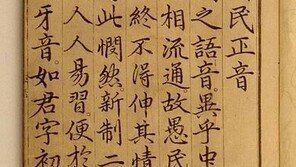 民正音
之語音。異乎中
相流通。故愚民
終不得伸其情
此憫然新制二
人人易習。便於
牙音。如君字初